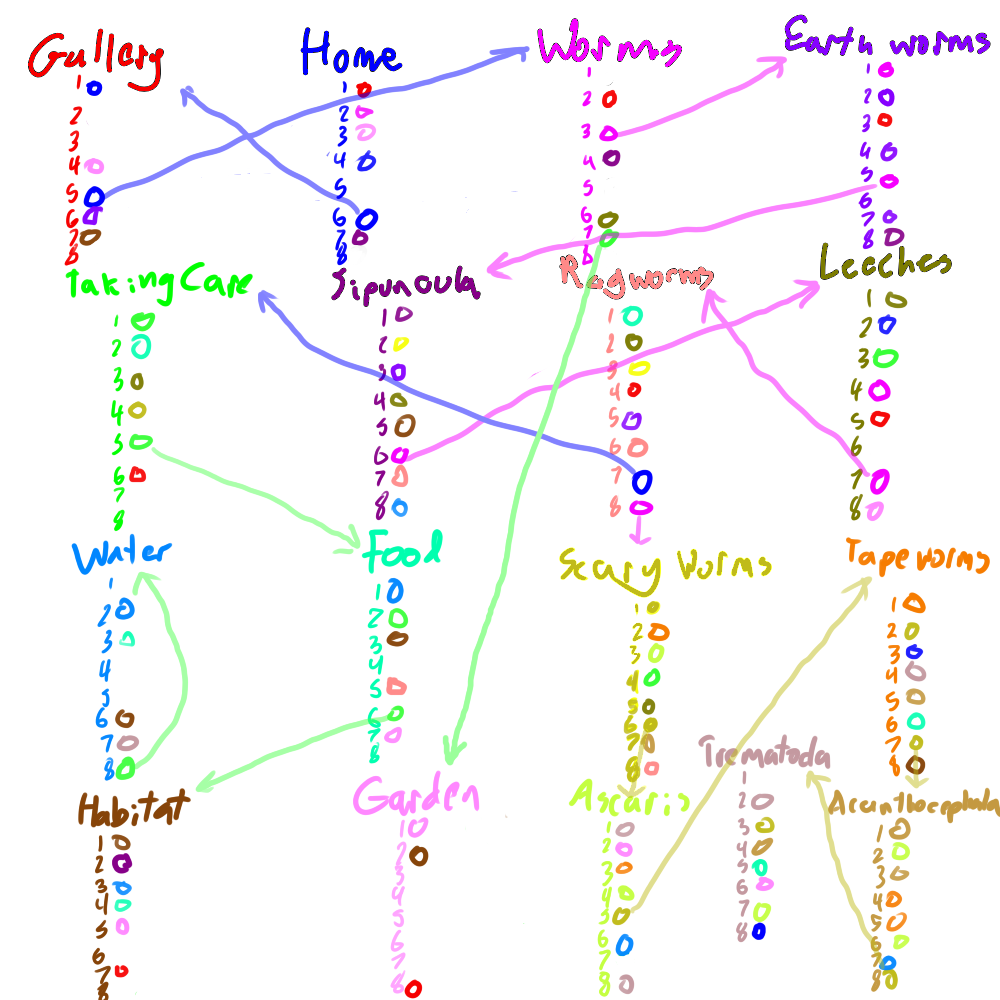 Gallery
1
2
3
4
5
6
7
8
Home
1
2
3
4
5
6
7
8
Worms
1
2
3
4
5
6
7
8
Earth worms
1
2
3
4
5
6
7
8
Taking Care
1
2
3
4
5
6
7
8
Sipuncula
1
2
3
4
5
6
7
8
Ragworms
1
2
3
4
5
6
7
8
Leeches
1
2
3
4
5
6
7
8
Water
1
2
3
4
5
6
7
8
Food
1
2
3
4
5
6
7
8
Scary Worms
1
2
3
4
5
6
7
8
Tapeworms
1
2
3
4
5
6
7
8
Habitat
1
2
3
4
5
6
7
8
Garden
1
2
3
4
5
6
7
8
Ascaris
1
2
3
4
5
6
7
8
Trematoda
1
2
3
4
5
6
7
8
Acanthocephala
1
2
3
4
5
6
7
8